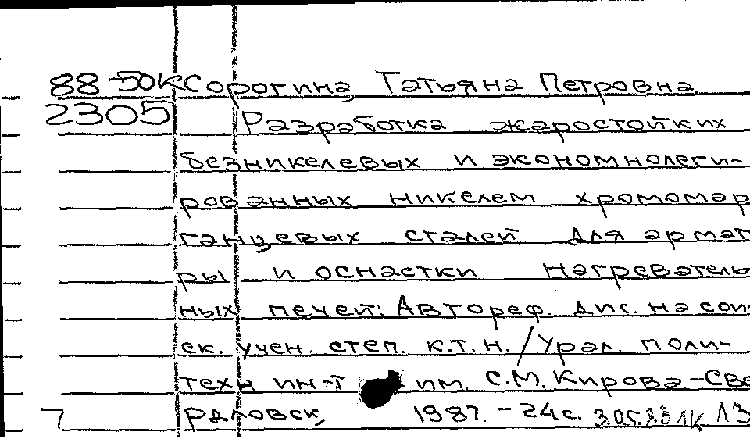 88-50К Сорогина, Татьяна Петровна
2305 Разработка жаростойких
безникелевых и экономнолеги-
рованных никелем хромомар
ганцевых сталей для армат
ры и оснастки нагреватель
ных печей: Автореф. дис. на сои-
ск. учен. степ. к.т.н. / Урал. поли-
техн ин-т им. С.М. Кирова - Све
рдловск, 1987. - 24с.